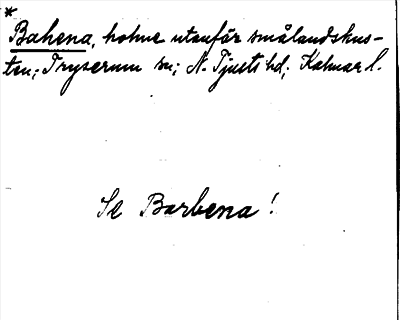 *
Bahena, holme utanför smålandskus-
ten; Tryserum sn; N. Tjusts hd; Kalmar l.
Se Barbena!